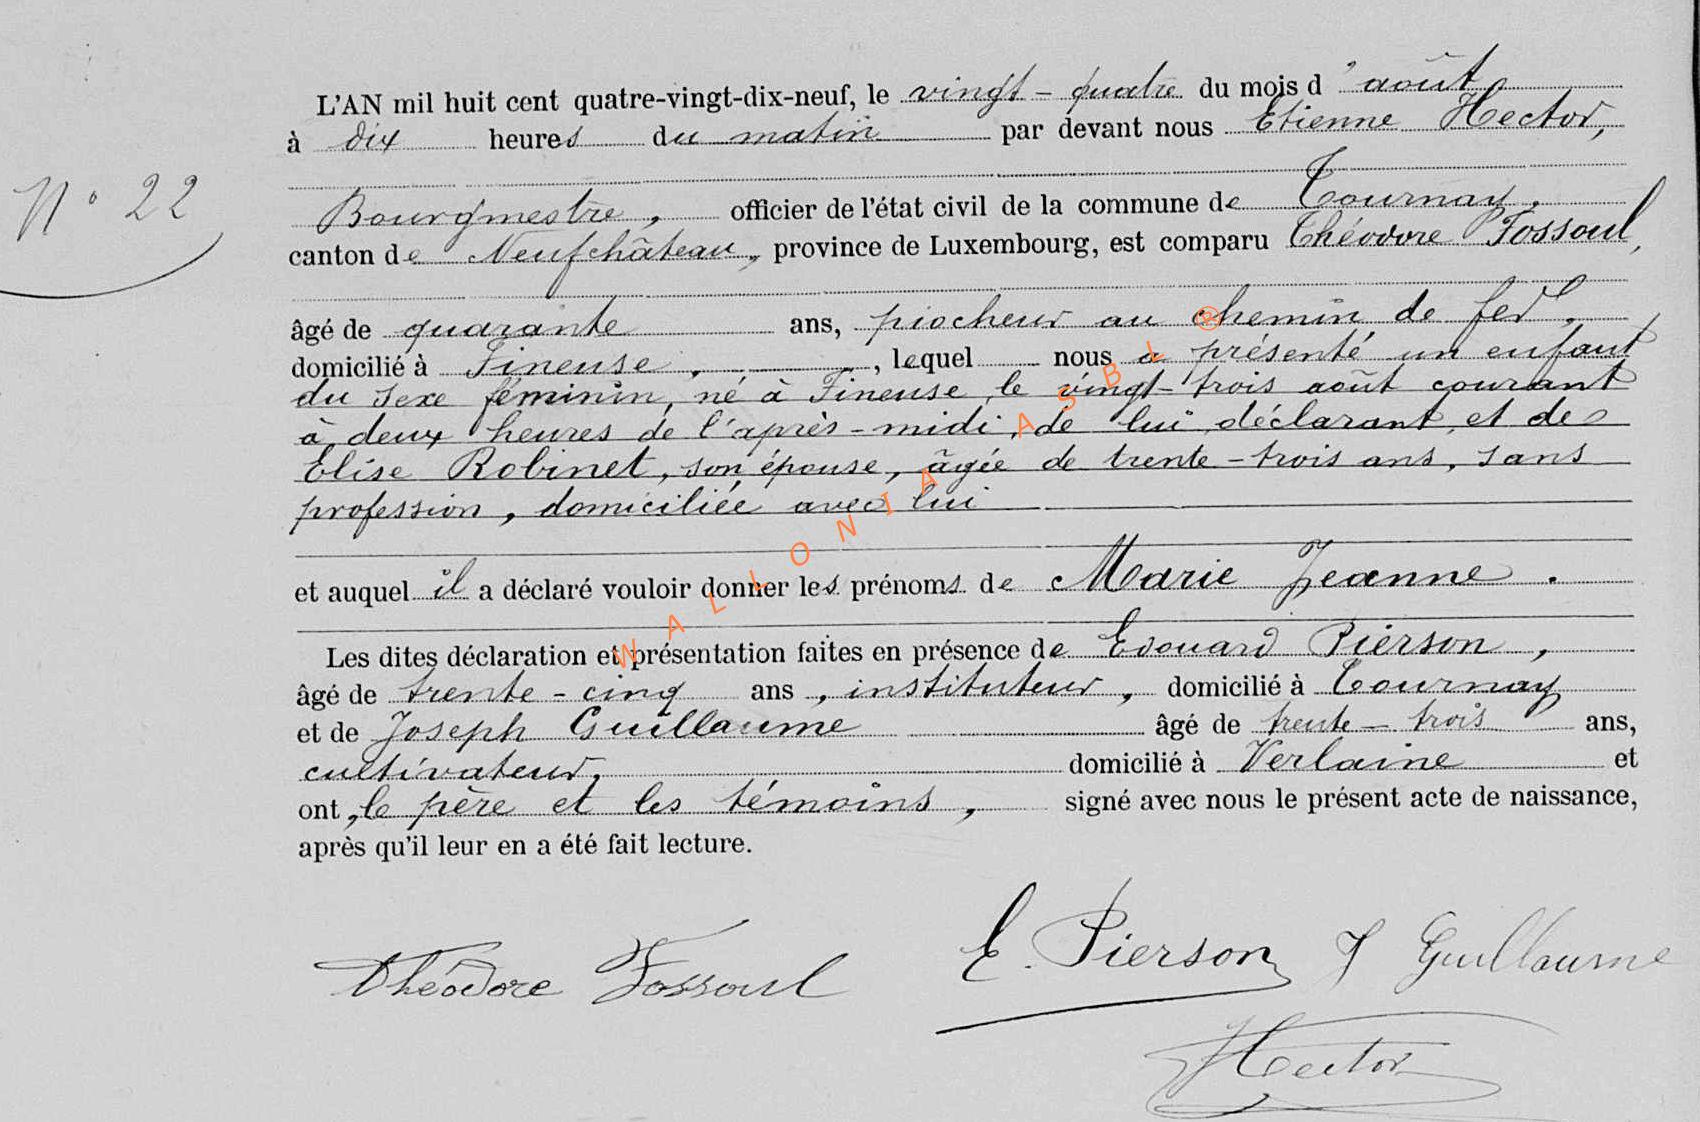 L'AN mil huit cent quatre-vingt-dix-neuf, le vingt-quatre du mois d'août
à dix heures du matin par devant nous Etienne Hector,
N° 22
Bourgmestre, officier de l'état civil de la commune de Tournay,
canton de Neufchâteau, province de Luxembourg, est comparu Théodore Fossoul,
âgé de quarante ans, piocheur au chemin de fer,
domicilié à Tineuse, lequel nous a présenté un enfant
du sexe féminin, né à Tineuse, le vingt-trois août courant
à deux heures de l'après-midi, de lui déclarant, et de
Elise Robinet, son épouse, âgée de trente-trois ans, sans
profession, domiciliée avec lui
et auquel il a déclaré vouloir donner les prénoms de Marie Jeanne.
Les dites déclaration et présentation faites en présence de Edouard Pierson,
âgé de trente-cinq ans, instituteur, domicilié à Tournay
et de Joseph Guillaume âgé de trente-trois ans,
cultivateur, domicilié à Verlaine et
ont, le père et les témoins, signé avec nous le présent acte de naissance,
après qu'il leur en a été fait lecture.
Théodore Fossoul E. Pierson J Guillaume
Hector
WALLONIA ASBL ®